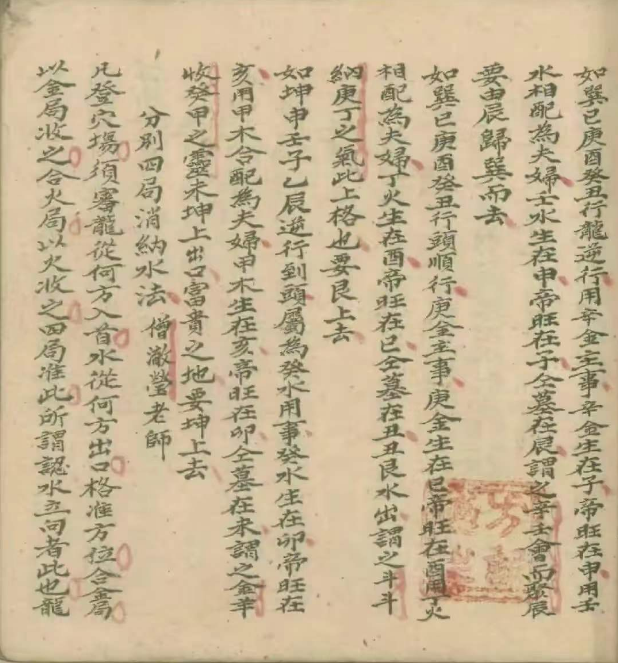 如巽巳庚酉癸丑行龍逆行用辛金主事辛金生在子帝旺在申用壬
水相配為夫婦壬水生在申帝旺在子仝墓在辰謂之辛壬會而聚辰
要由辰歸巽而去
如巽巳庚酉癸丑行頭順行庚金主事庚金生在巳帝旺在酉用丁火
相配為夫婦丁火生在酉帝旺在巳仝墓在丑丑艮水出謂之斗斗
納庚丁之氣此上格也要艮上去
如坤申壬子乙辰逆行到頭屬為癸水用事癸水生在卯帝旺在
亥用甲木合配為夫婦甲木生在亥帝旺在卯仝墓在未謂之金羊
收癸甲之靈未坤上出口富貴之地要坤上去
分別四局消納水法 僧澈瑩老師
凡登穴場須審龍從何方入首水從何方出口格准方位合金局
以金局收之合火局以火收之四局准此所謂認水立向者此也龍